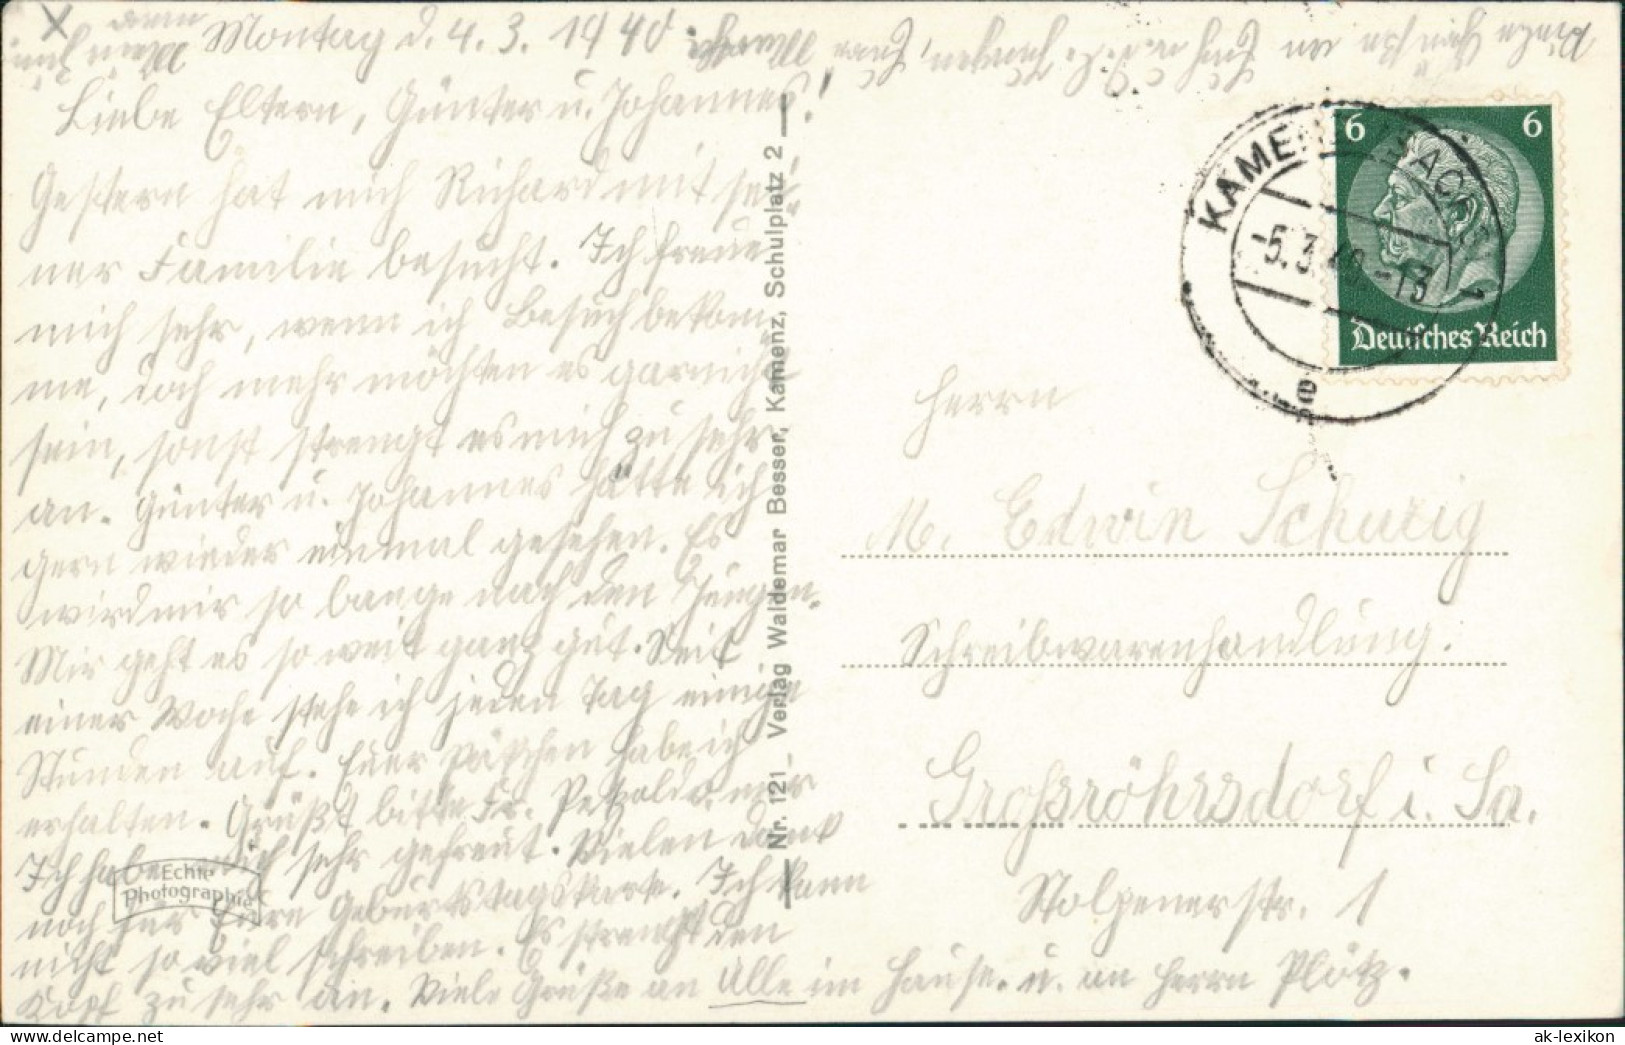 Montag d. 4. 3. 1940.
Liebe Eltern, Günter u. Johannes!
Gestern hat mich Richard mit sei-
ner Familie besucht. Ich freue
mich sehr, wenn ich Besuch bekom-
me, doch mehr möchten es garnicht
sein, sonst strengt es mich zu sehr
an. Günter u. Johannes hätte ich
gern wieder einmal gesehen. Es
wird mir so bange nach den Jungen.
Mir geht es so weit ganz gut. Seit
einer Woche stehe ich jeden Tag einige
Stunden auf. Euer Päckchen habe ich
erhalten. Grüßt bitte Fr. Petzold
Ich habe mich sehr gefreut. Vielen Dank
noch für Eure Geburtstagskarte. Ich kann
nicht so viel schreiben. Es strengt den
Kopf zu sehr an. Viele Grüße an Alle im Hause. u. an Herrn Plötz.
Nr. 121 Verlag Waldemar Besser, Kamenz, Schulplatz 2
Echte
Photographie
6 6
Deutsches Reich
KAMENZ (SACHS)
-5.3.40.-13
e
Herrn
M. Edwin Schurig
Schreibwarenhandlung.
Großröhrsdorf i. Sa.
Stolpenerstr. 1
ak-lexikon